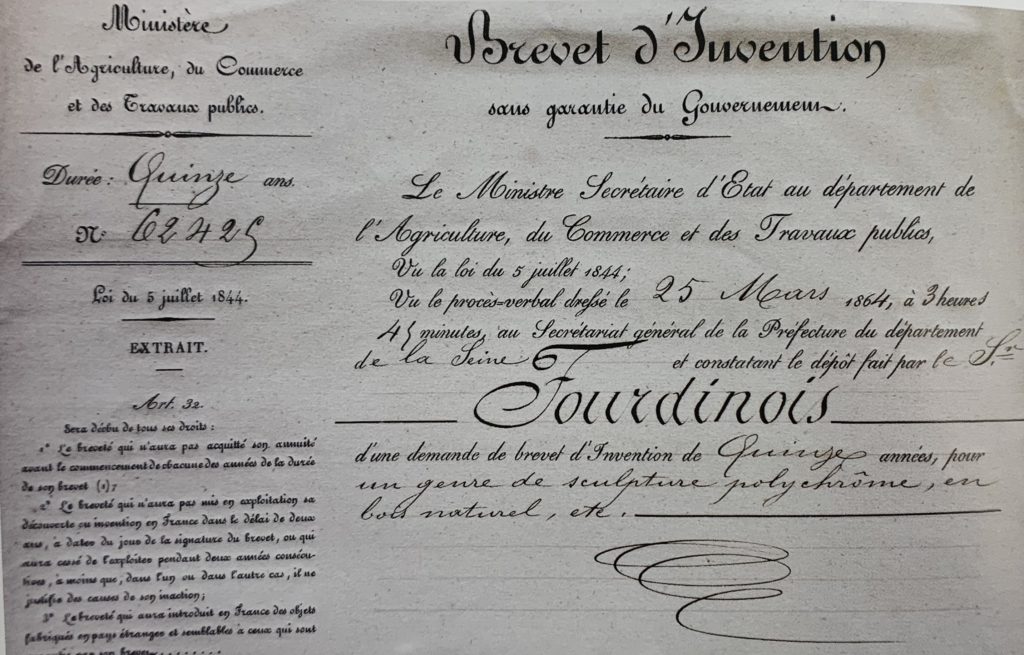 Ministère
de l'Agriculture, du Commerce
et des Travaux publics.
Durée: Quinze ans.
N° 62425
Loi du 5 juillet 1844.
EXTRAIT.
Art. 32.
Sera déchu de tous ses droits :
1° Le breveté qui n'aura pas acquitté son annuité
avant le commencement de chacune des années de la durée
de son brevet (1);
2° Le breveté qui n'aura pas mis en exploitation sa
découverte ou invention en France dans le délai de deux
ans, à dater du jour de la signature du brevet, ou qui
aura cessé de l'exploiter pendant deux années consécu-
tives, à moins que, dans l'un ou dans l'autre cas, il ne
justifie des causes de son inaction;
3° Le breveté qui aura introduit en France des objets
fabriqués en pays étranger et semblables à ceux qui sont
par son brevet
Brevet d'Invention
sans garantie du Gouvernement.
Le Ministre Secrétaire d'Etat au département de
l'Agriculture, du Commerce et des Travaux publics,
Vu la loi du 5 juillet 1844;
Vu le procès-verbal dressé le 25 Mars 1864, à 3 heures
45 minutes, au Secrétariat général de la Préfecture du département
de la Seine et constatant le dépôt fait par le Sr
Fourdinois
d'une demande de brevet d'Invention de Quinze années, pour
un genre de sculpture polychrôme, en
bois naturel, etc.